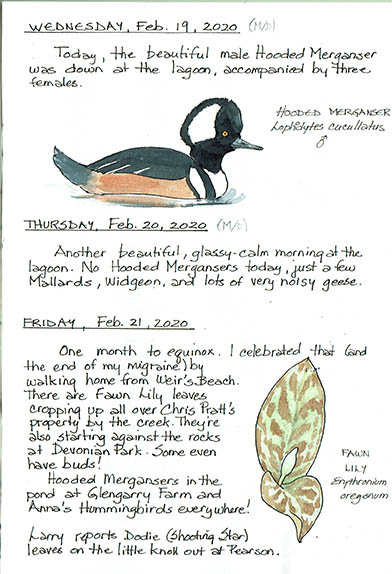 WEDNESDAY, Feb. 19, 2020 (M/D)
Today, the beautiful male Hooded Merganser
was down at the lagoon, accompanied by three
females.
HOODED MERGANSER
Lophodytes cucullatus
♂
THURSDAY, Feb. 20, 2020 (M/D)
Another beautiful, glassy-calm morning at the
lagoon. No Hooded Mergansers today, just a few
Mallards, Widgeon, and lots of very noisy geese.
FRIDAY, Feb. 21, 2020
One month to equinox. I celebrated that (and
the end of my migraine) by
walking home from Weir's Beach.
There are Fawn Lily leaves
cropping up all over Chris Pratt's
property by the creek. They're
also starting against the rocks
at Devonian Park. Some even
have buds!
Hooded Mergansers in the
pond at Glengarry Farm and
Anna's Hummingbirds everywhere!
Larry reports Dodie (Shooting Star)
leaves on the little knoll out at Pearson.
FAWN
LILY
Erythronium
oregonum